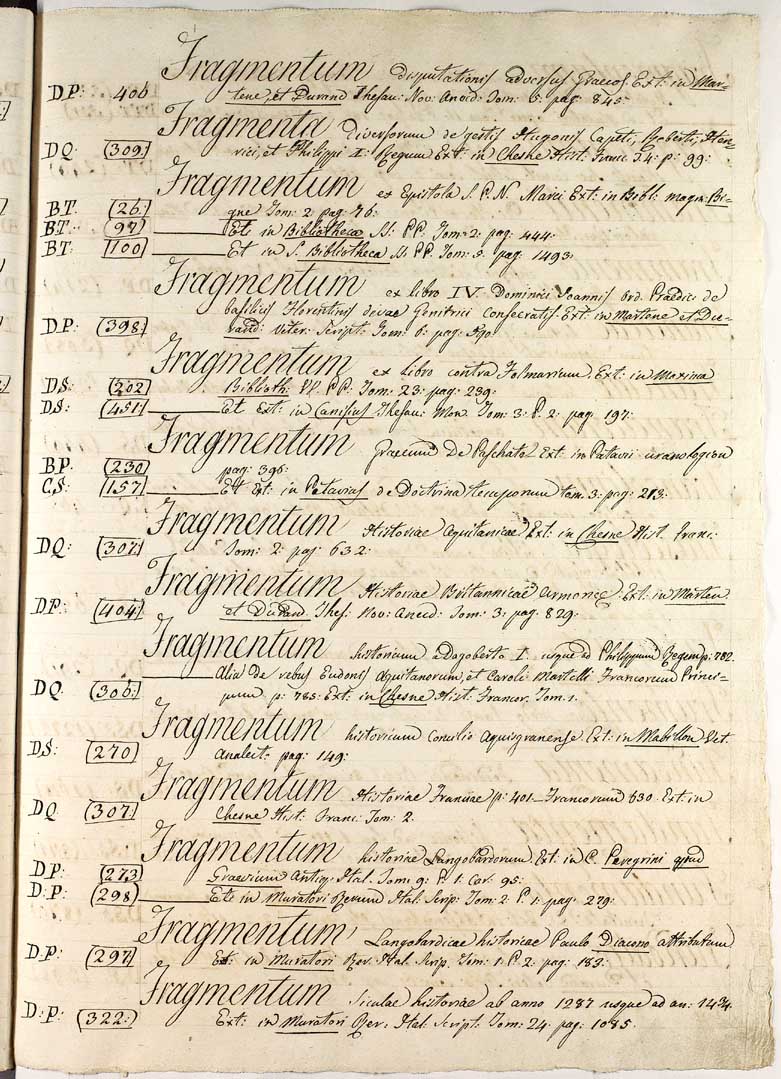 Fragmentum disputationis adversus Graecos. Ext: in Mar-
D.P: 406 tene, et Durand Thesau: Nov: Anecd: Tom: 5: pag: 845:
Fragmenta diversorum de gestis Hugonis Capeti, Roberti, Hen-
DQ: 309: rici, et Philippi I: Regum Ext: in Chesne Hist: Franc: T.4: p: 99:
Fragmentum ex Epistola S. P. N. Marci Ext: in Bibl: magn: Bi-
BT. 26: gne Tom: 2: pag: 76:
BT. 97: Ext: in Bibliotheca SS. PP. Tom: 2: pag: 444:
BT: 100: Et in S. Bibliotheca SS. PP. Tom: 5: pag: 1493:
Fragmentum ex libro IV. Dominici Joannis ord. Praedic: de
basilicis Florentinis Genitrici consecratis. Ext: in Martene et Du-
D.P: 398: rand: Veter: Script: Tom: 6: pag: 590:
Fragmentum ex libro contra Folmarium. Ext: in Maxima
DS: 202 Biblioth: VV. PP. Tom: 23: pag: 239:
DS: 451: Et Ext: in Canisius Thesau: Mon. Tom: 3: P. 2: pag: 197:
Fragmentum graecum De Paschate Ext: in Patavii uranologion
BP. 230 pag: 396:
C.S: 157 Et Ext: in Petavius de Doctrina temporum tom. 3: pag: 213:
Fragmentum Historiae Aquitanicae Ext: in Chesne Hist. Franc:
DQ: 307: Tom: 2: pag: 632:
Fragmentum Historiae Britannicae Armoricae Ext: in Marten
DP: 404: et Durand. Thes: Nov: Anecd: Tom: 3: pag: 829:
Fragmentum historicum a Dagoberto I. usque ad Philippum Regem p: 782.
Alia De rebus Eudonis Aquitanorum, et Caroli Martelli Francorum Princi-
DQ: 306: pum p: 785: Ext: in Chesne Hist: Francor. Tom: 1.
Fragmentum historicum Concilio Aquisgranense Ext: in Mabillon Vet.
DS: 270 Analect: pag: 149:
Fragmentum Historiae Franciae p: 401 - Francorum 630. Ext: in
DQ 307: Chesne Hist: Franc: Tom: 2.
Fragmentum historiae Langobardorum Ext: in C. Peregrini apud
DP: 273 Graevium Antiq: Ital. Tom: 9: P. 1: Car: 95:
D:P: 298: Ext: in Muratori Rerum Ital. Scrip: Tom: 2: P. 1: pag: 279:
Fragmentum Langobardicae historicae Paulo Diacono attributum
D.P: 297: Ext: in Muratori Rer: Ital. Scrip. Tom: 1: P. 2: pag: 183:
Fragmentum Siculae historiae ab anno 1287 usque ad an: 1434.
D:P: 322: Ext: in Muratori Rer: Ital. Script: Tom: 24: pag: 1085.